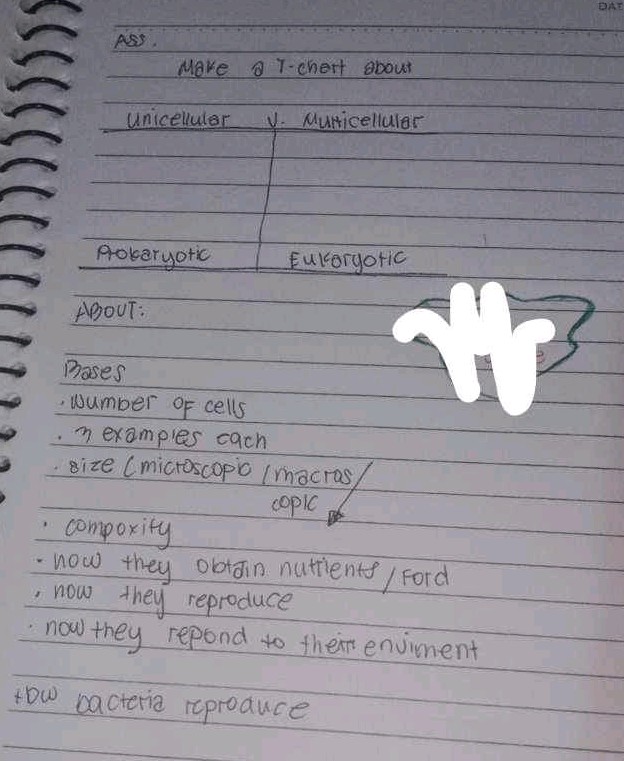 DAT
ASS.
Make a T-chart about
Unicellular V. Multicellular
Prokaryotic Eukaryotic
ABOUT:
Bases
. Number of cells
. 3 examples each
. size (microscopic / macros/
copic
. compoxity
. how they obtain nutrients / Ford
. how they reproduce
. how they repond to their enviment
How bacteria reproduce